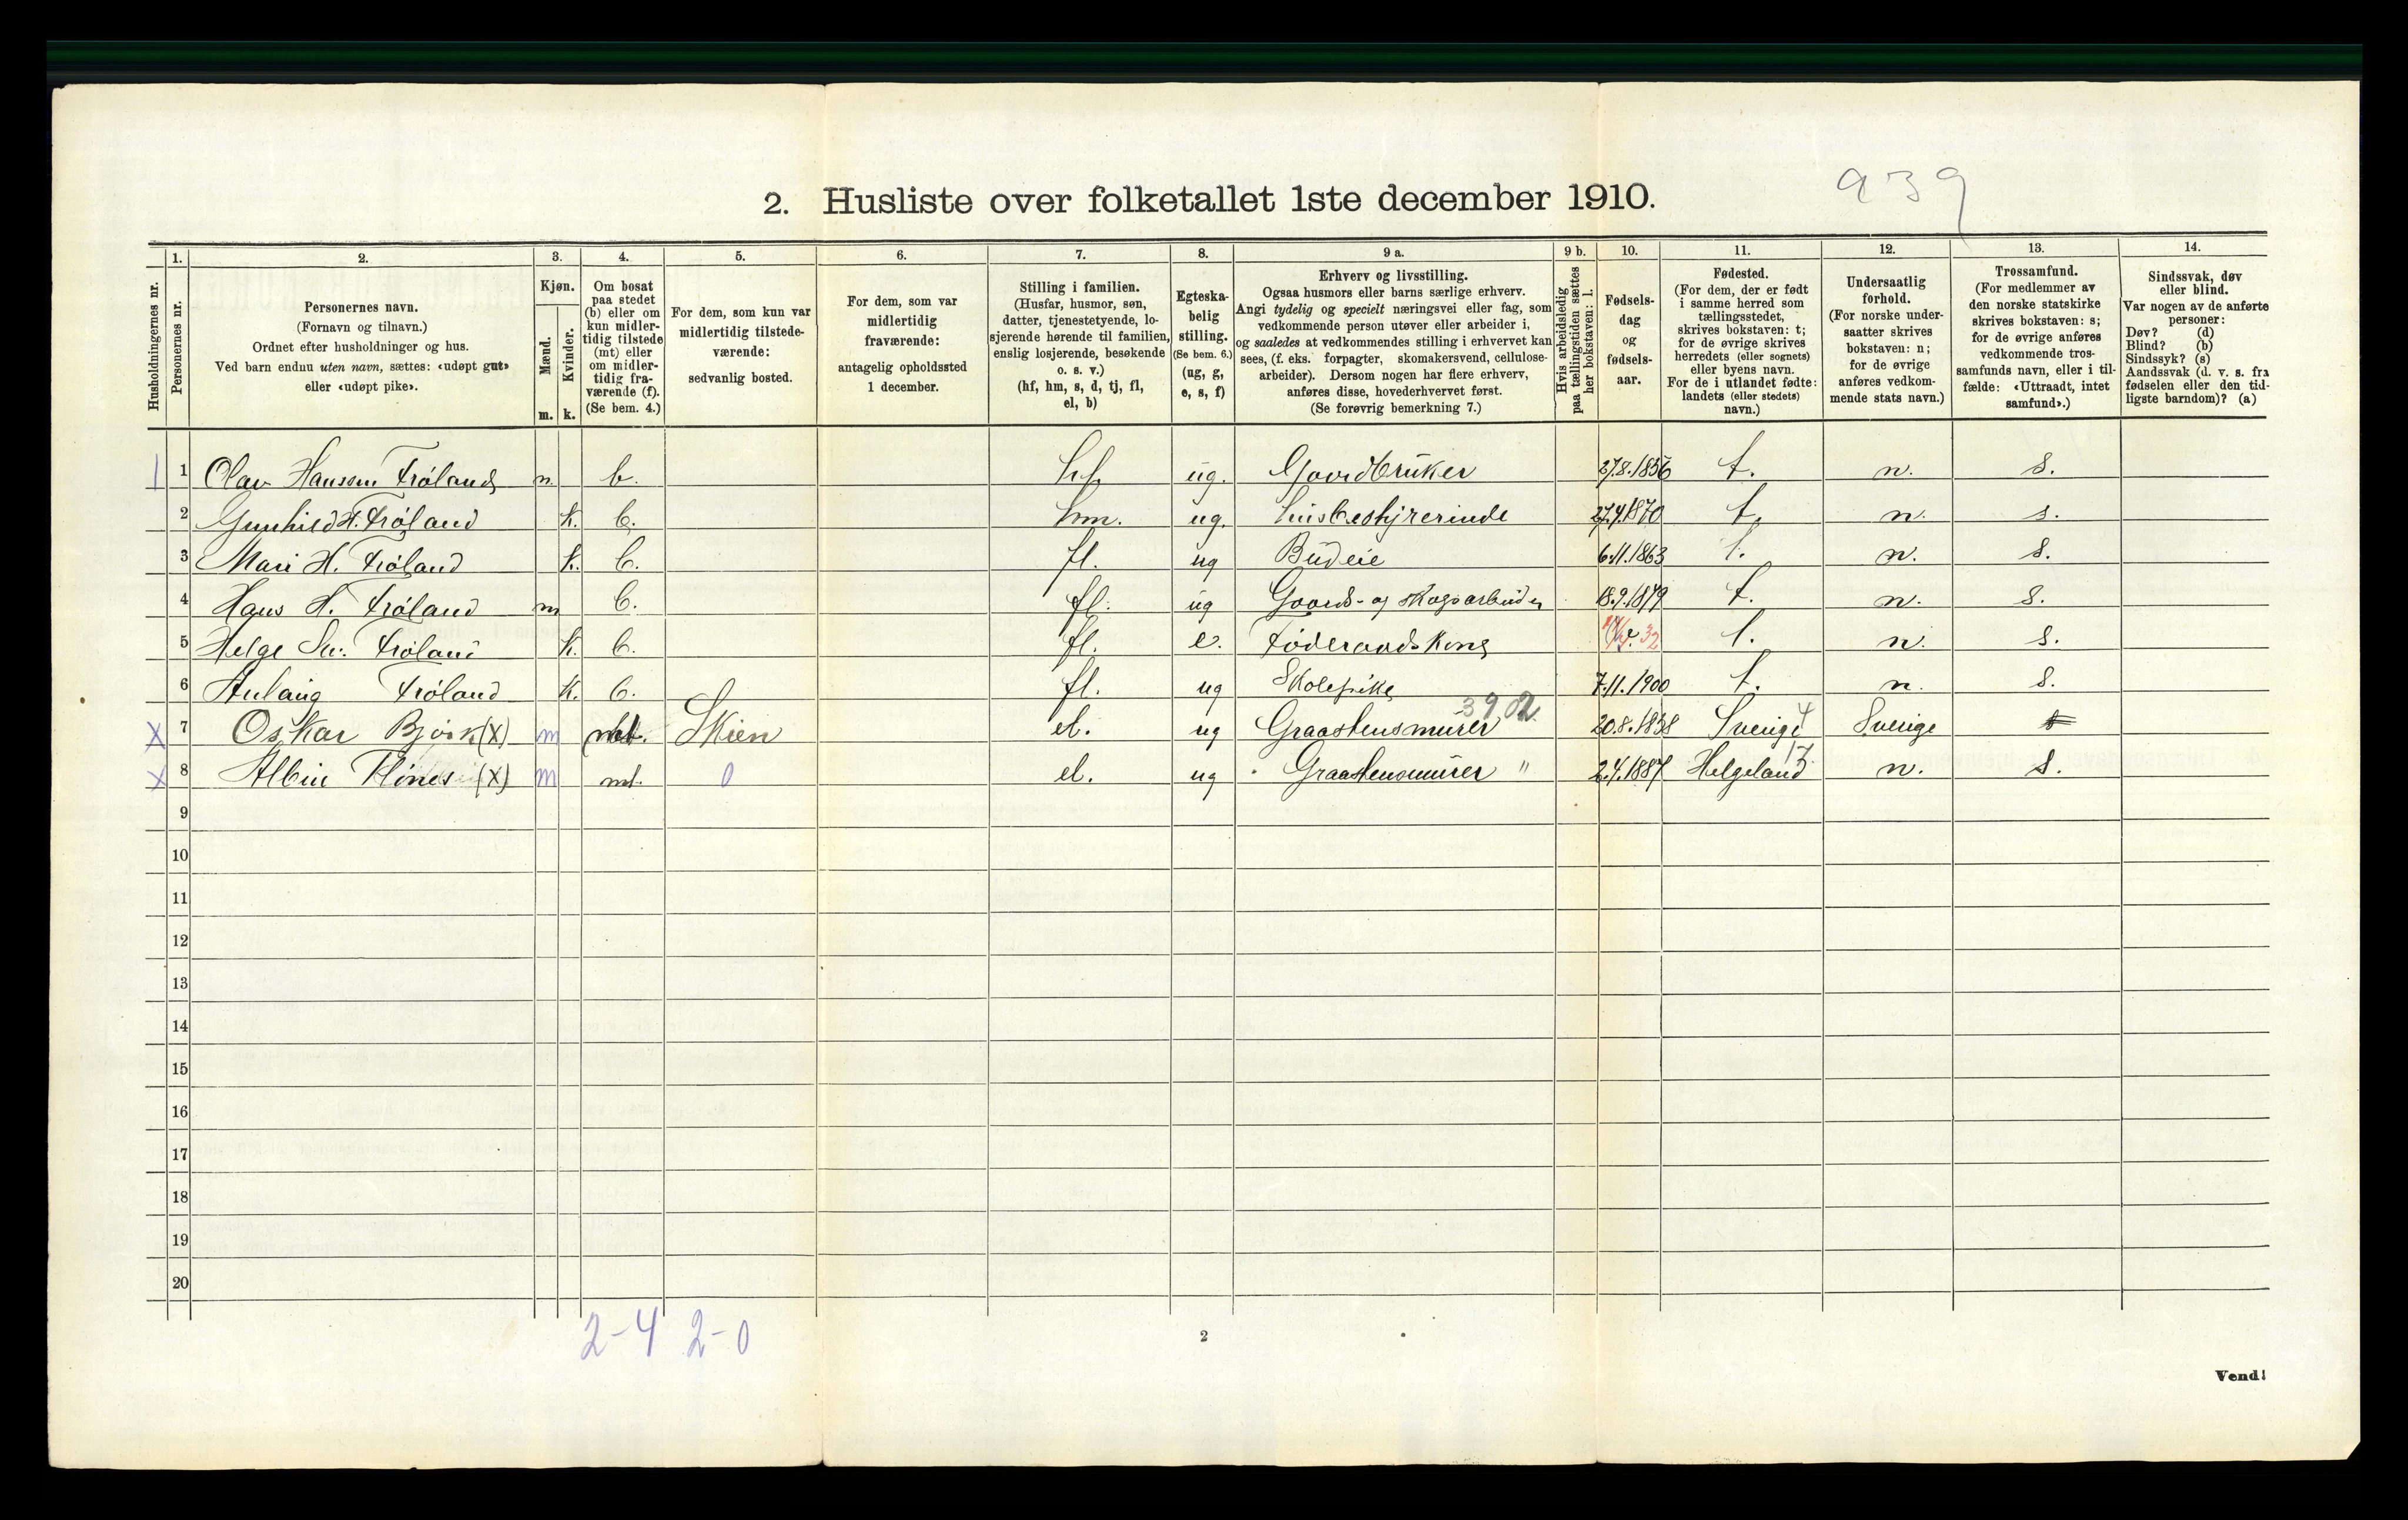 939
2. Husliste over folketallet 1ste december 1910.
Husholdningernes nr.
1. Personernes nr.
2. Personernes navn.
(Fornavn og tilnavn.)
Ordnet efter husholdninger og hus.
Ved barn endnu uten navn, sættes: «udøpt gut»
eller «udøpt pike».
3. Kjøn.
Mænd. m.
Kvinder. k.
4. Om bosat
paa stedet
(b) eller om
kun midler-
tidig tilstede
(mt) eller
om midler-
tidig fra-
værende (f).
(Se bem. 4.)
5. For dem, som kun var
midlertidig tilstede-
værende:
sedvanlig bosted.
6. For dem, som var
midlertidig
fraværende:
antagelig opholdssted
1 december.
7. Stilling i familien.
(Husfar, husmor, søn,
datter, tjenestetyende, lo-
sjerende hørende til familien,
enslig losjerende, besøkende
o. s. v.)
(hf, hm, s, d, tj, fl,
el, b)
8. Egteska-
belig
stilling.
(Se bem. 6.)
(ug, g,
e, s, f)
9 a. Erhverv og livsstilling.
Ogsaa husmors eller barns særlige erhverv.
Angi tydelig og specielt næringsvei eller fag, som
vedkommende person utøver eller arbeider i,
og saaledes at vedkommendes stilling i erhvervet kan
sees, (f. eks. forpagter, skomakersvend, cellulose-
arbeider). Dersom nogen har flere erhverv,
anføres disse, hovederhvervet først.
(Se forøvrig bemerkning 7.)
9 b. Hvis arbeidsledig
paa tællingstiden sættes
her bokstaven: l.
10. Fødsels-
dag
og
fødsels-
aar.
11. Fødested.
(For dem, der er født
i samme herred som
tællingsstedet,
skrives bokstaven: t;
for de øvrige skrives
herredets (eller sognets)
eller byens navn.
For de i utlandet fødte:
landets (eller stedets)
navn.)
12. Undersaatlig
forhold.
(For norske under-
saatter skrives
bokstaven: n;
for de øvrige
anføres vedkom-
mende stats navn.)
13. Trossamfund.
(For medlemmer av
den norske statskirke
skrives bokstaven: s;
for de øvrige anføres
vedkommende tros-
samfunds navn, eller i til-
fælde: «Uttraadt, intet
samfund».)
14. Sindssvak, døv
eller blind.
Var nogen av de anførte
personer:
Døv? (d)
Blind? (b)
Sindssyk? (s)
Aandssvak (d. v. s. fra
fødselen eller den tid-
ligste barndom)? (a)
1 1 Olav Hansson Frøland m b. hf. ug. Gaardbruker 27.8.1856 t. n. s.
2 Gunhild H. Frøland k. b. hm. ug. husbestyrerinde 27.4.1870 t. n. s.
3 Mari H. Frøland k. b. fl. ug Budeie 6.11.1863 t. n. s.
4 Hans H. Frøland m b. fl. ug Gaards- og skogsarbeider 18.9.1879 t. n. s.
5 Helge Frøland k. b. fl. e. Føderaadskone 32 t. n. s.
6 Aslaug Frøland k. b. fl. ug Skolepike 7.11.1900 t. n. s.
3902
X 7 Oskar Bjørk (X) m mt. Skien el. ug Graastensmurer 20.8.1838 Sverige 4 Sverige
X 8 Albin (X) m mt. 0 el. ug Graastensmurer " 2.4.1887 Helgeland 17 n. s.
9
10
11
12
13
14
15
16
17
18
19
20
2-4 2-0
2
Vend!